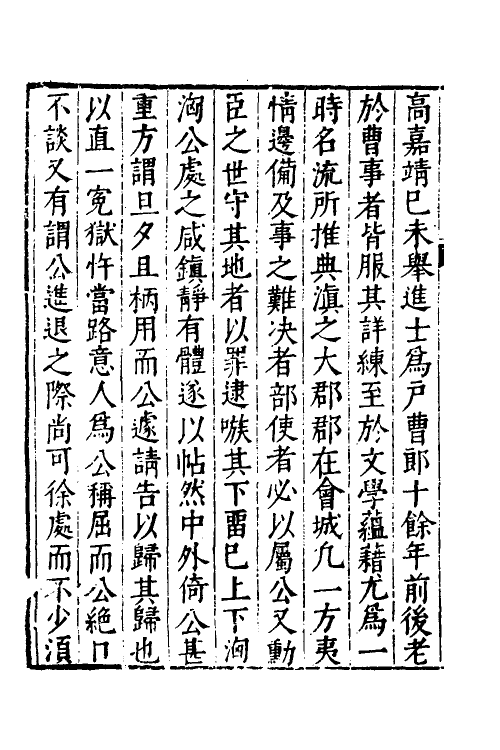 高嘉靖巳未舉進士爲戸曹郎十餘年前後老
於曹事者皆服其詳練至於文學蘊藉尤爲一
時名流所推典滇之大郡郡在會城凢一方夷
情邊備及事之難决者部使者必以屬公又勳
臣之世守其地者以罪逮嗾其下畱巳上下洶
洶公處之咸鎮靜有體遂以帖然中外倚公甚
重方謂旦夕且柄用而公遽請告以歸其歸也
以直一寃獄忤當路意人爲公稱屈而公絶口
不談又有謂公進退之際尚可徐處而不少湏